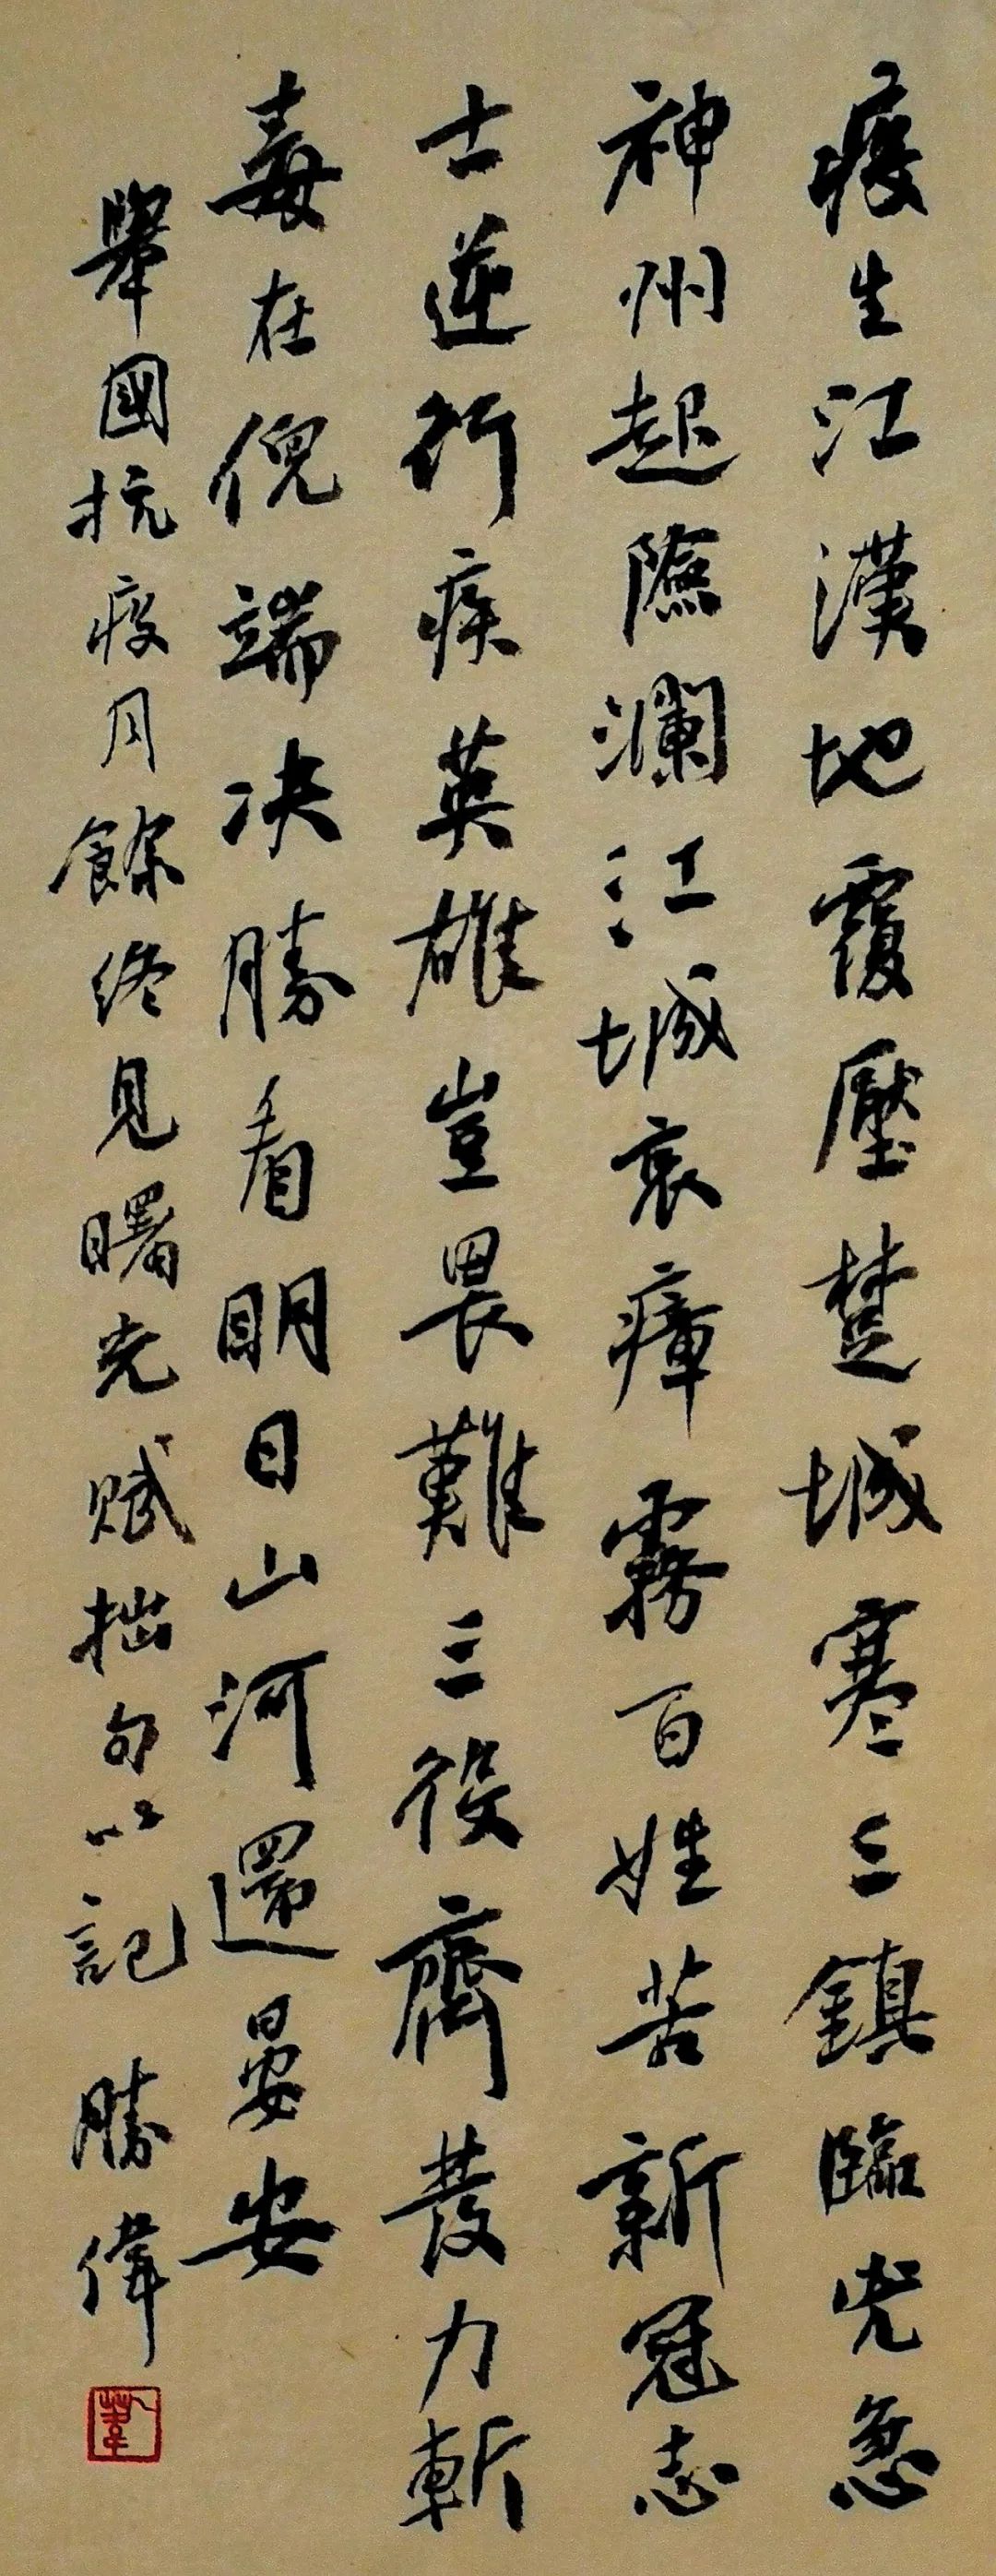 疫生江漢地霾壓楚城寒三鎮臨兇急
神州起險瀾江城哀瘴霧百姓苦新冠志
士逆行疾英雄豈畏難三役齊發力斬
毒在倪端決勝看明日山河還晏安
舉國抗疫月餘終見曙光賦拙句以記 勝偉